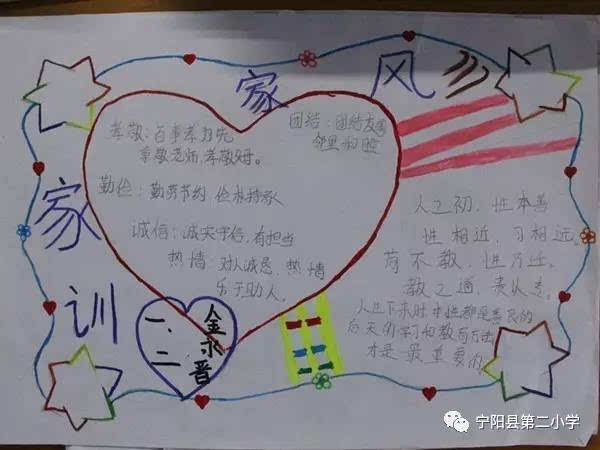 家风
孝敬：百事孝为先
孝敬老师，孝敬父母。
勤俭：勤劳节约 俭朴持家
诚信：诚实守信，有担当
热情：对人诚恳、热情
乐于助人。
团结：团结友爱
邻里和睦
家训
人之初，性本善
性相近，习相远
苟不教，性乃迁
教之道，贵以专
人生下来时本性都是善良的
后天的学习和教育
才是最重要的
一、二
金永晋
宁阳县第二小学